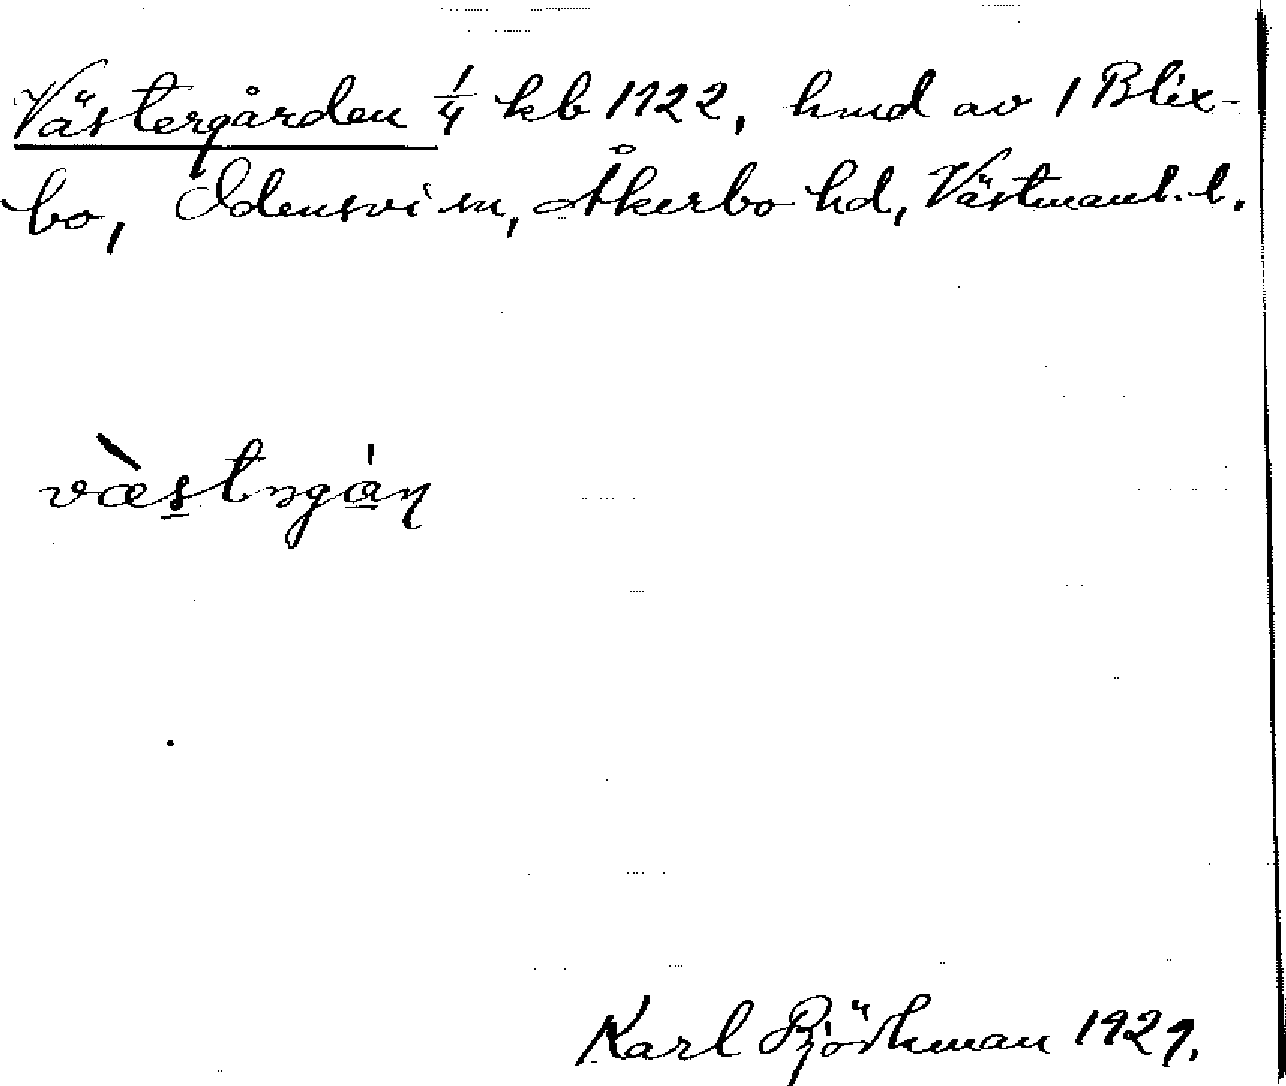 Västergården 1/4 kb 1122, hmd av 1 Blix-
bo, Odensvi sn, Åkerbo hd, Västmanl. l.
væ̀stngán
Karl Björkman 1929.